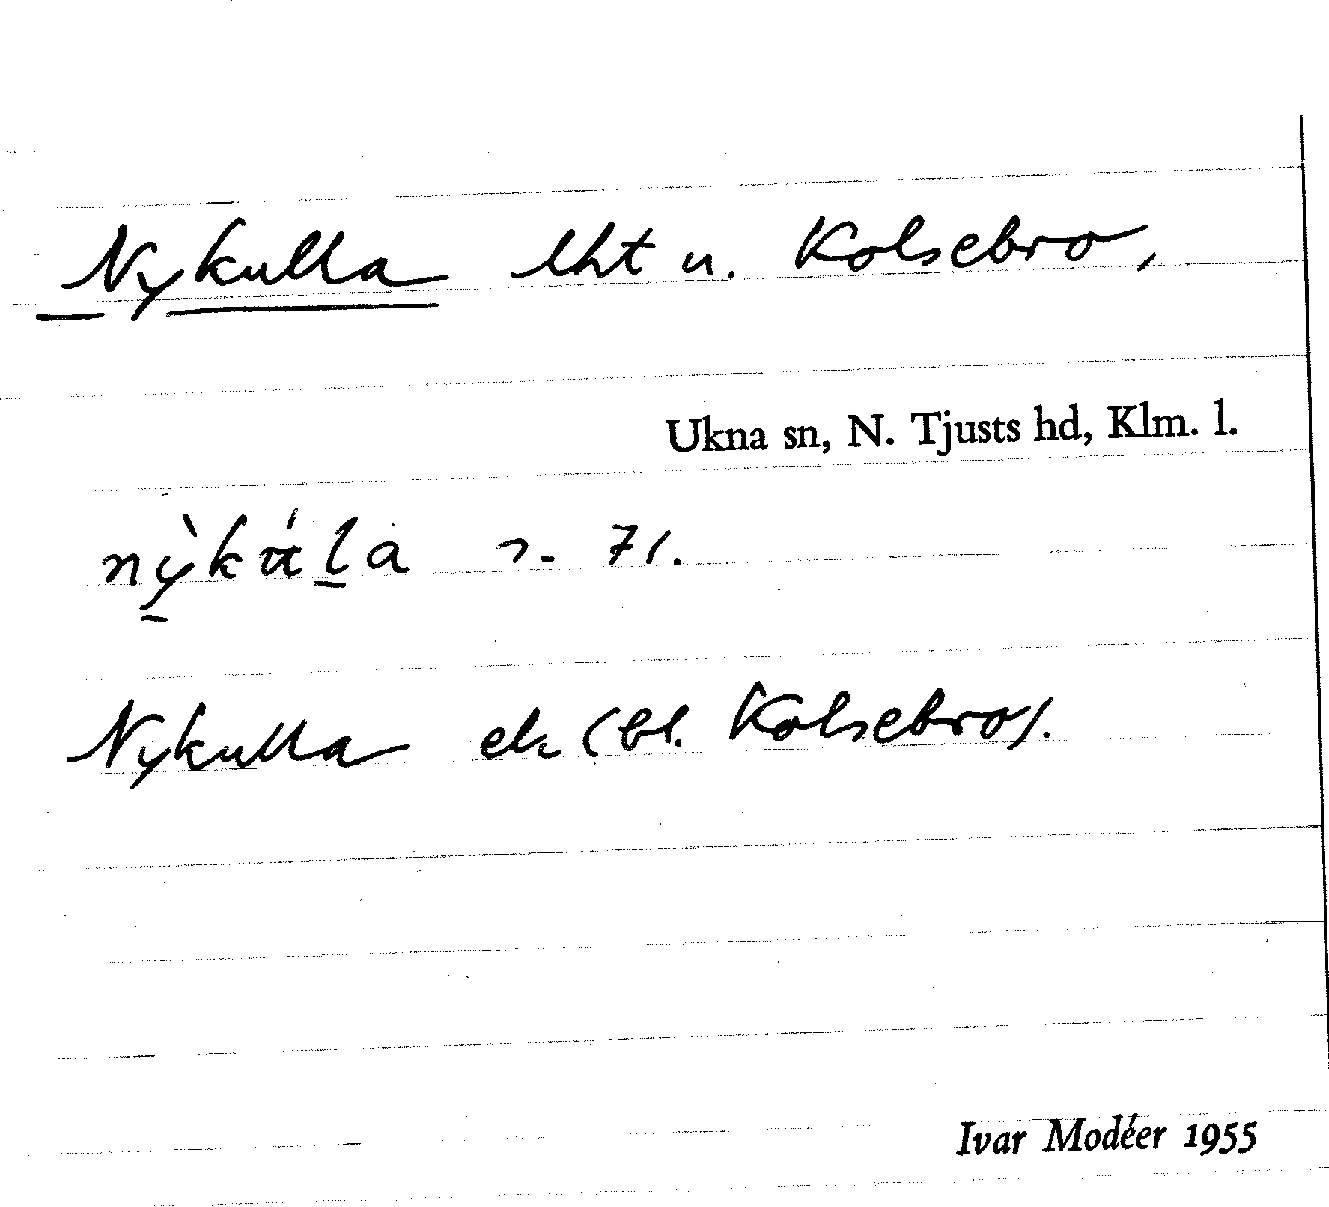 Nykulla lht u. Kolsebro,
Ukna sn, N. Tjusts hd, Klm. l.
71.
Nykulla ek (bl. Kolsebro).
Ivar Modéer 1955